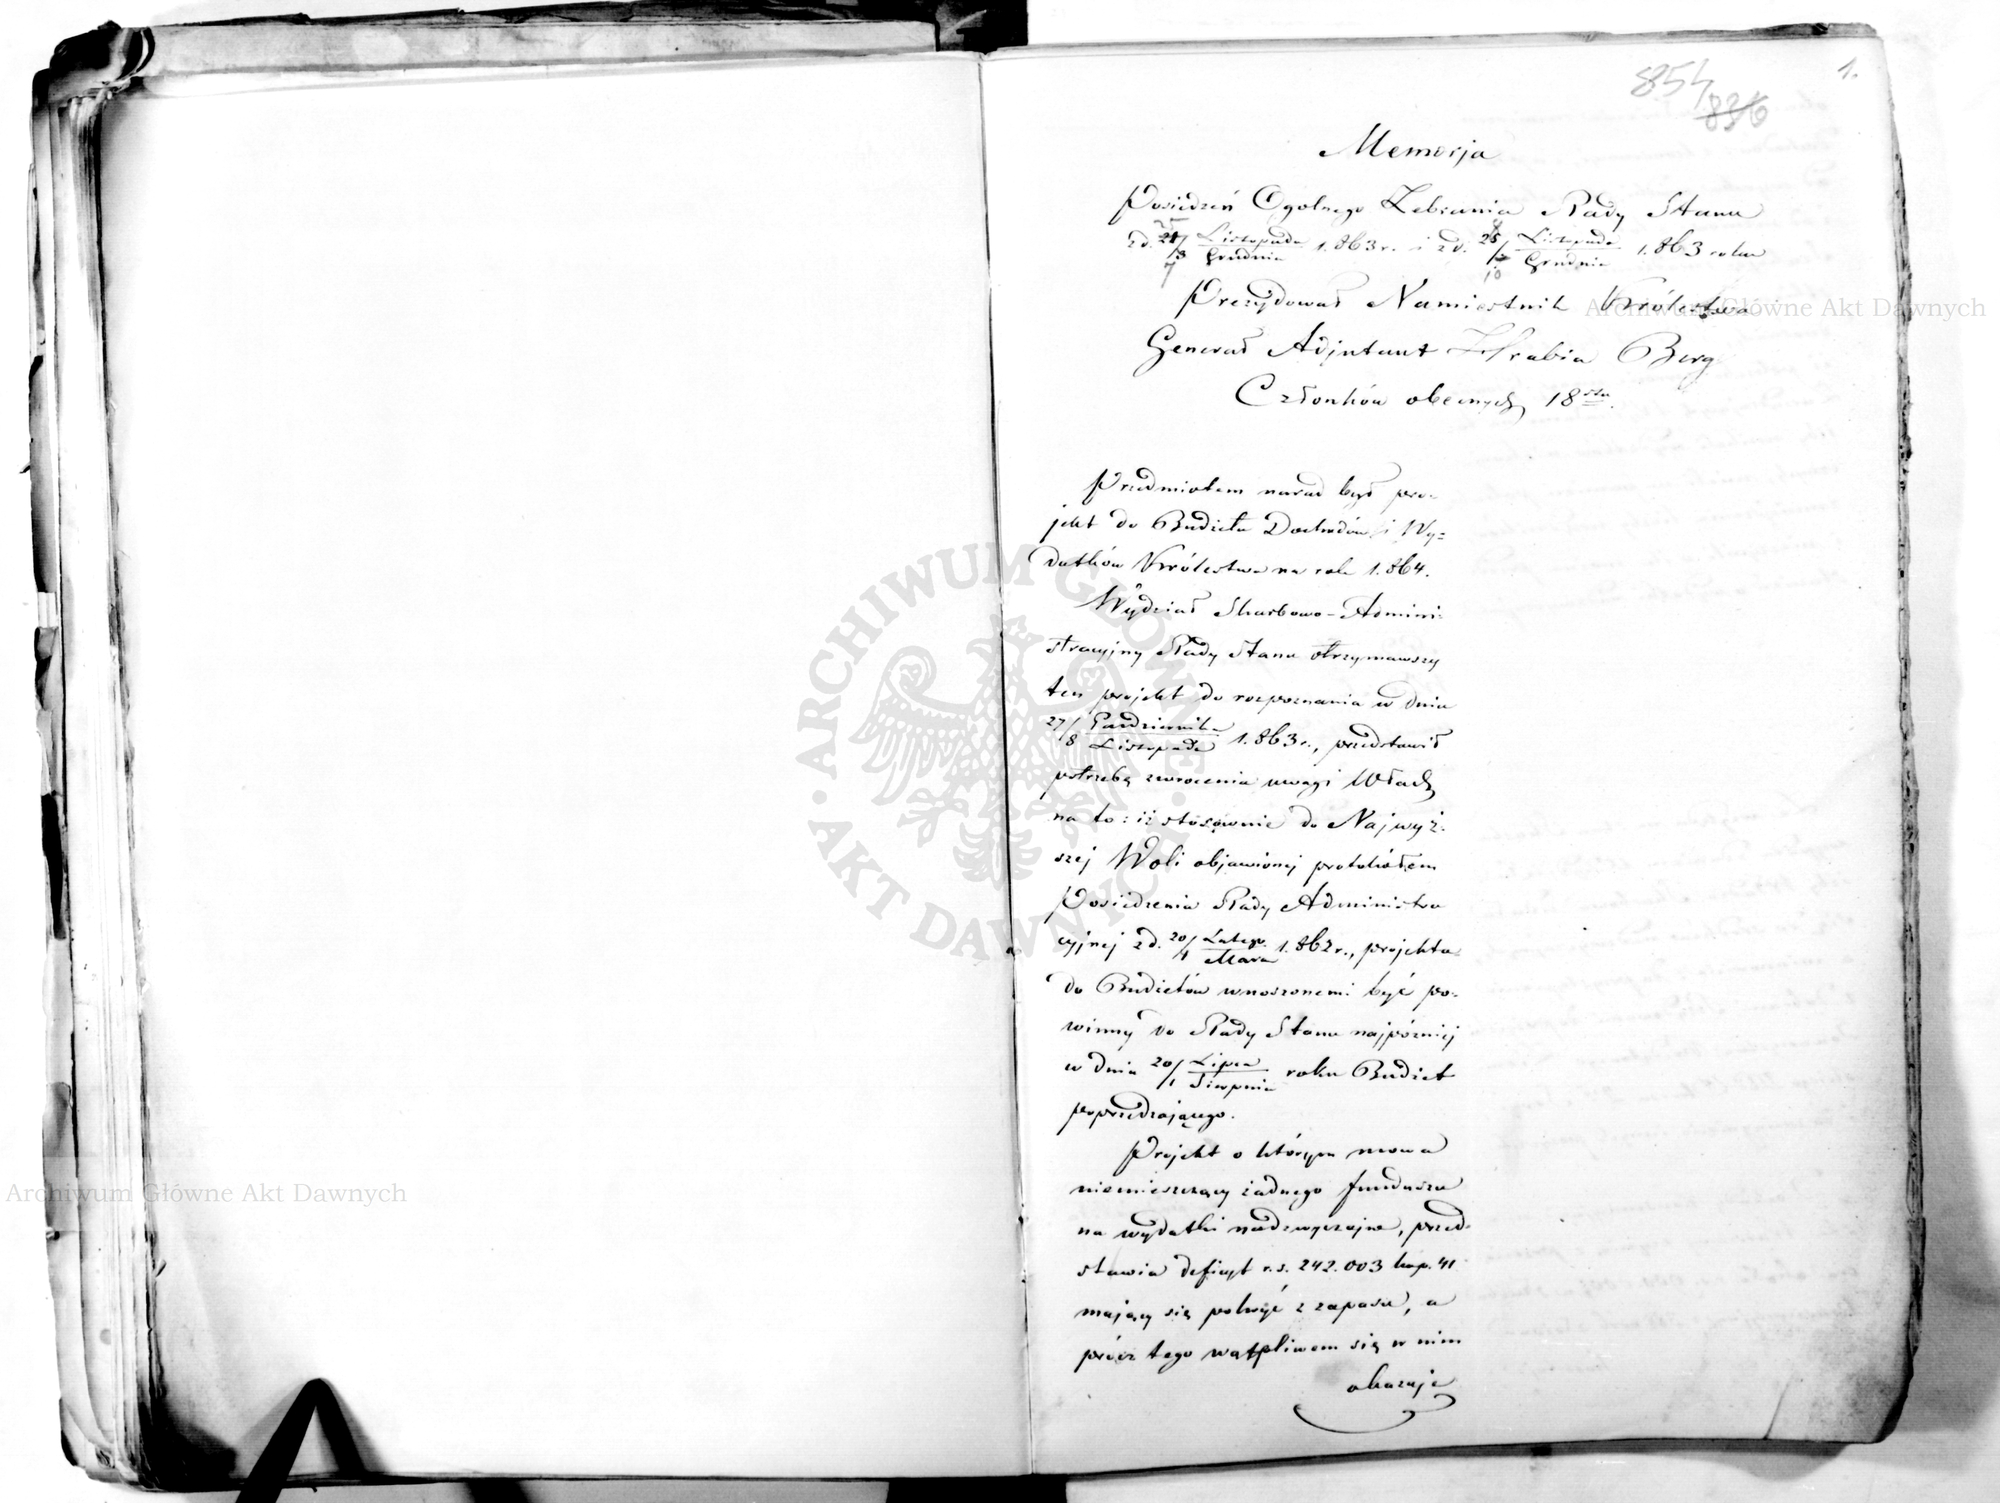 1.
854
836
Memorja
Posiedzeń Ogolnego Zebrania Rady Stanu
z d. 25/7 Listopada/Grudnia 1.863 r. i z d. 28/10 Listopada/Grudnia 1.863 roku
Prezydował Namiestnik Królestwa
Generał Adjutant Hrabia Berg
Członków obecnych 18stu.
Przedmiotem narad był pro-
jekt do Budżetu Dochodów i Wy-
datków Królestwa na rok 1.864.
Wydział Skarbowo-Admini-
stracyjny Rady Stanu otrzymawszy
ten projekt do rozpoznania w dniu
27/8 Października/Listopada 1.863 r., przedstawił
potrzebę zwrocenia uwagi Władz
na to: iż stosownie do Najwyż-
szej Woli objawionej protokółem
Posiedzenia Rady Administra
cyjnej z d. 20/1 Lutego/Marca 1.862 r., projekta
do Budżetów wnoszonemi być po-
winny do Rady Stanu najpóźniej
w dniu 20/1 Lipca/Sierpnia roku Budżet
poprzedzającego.
Projekt o którym mowa
niemieszczący żadnego funduszu
na wydatki nadzwyczajne, przed-
stawia deficyt r.s. 242.003 kop. 41
mający się pokryć z zapasu, a
prócz tego wątpliwem się w nim
okazuje
Archiwum Główne Akt Dawnych
ARCHIWUM GŁÓWNE AKT DAWNYCH
Archiwum Główne Akt Dawnych